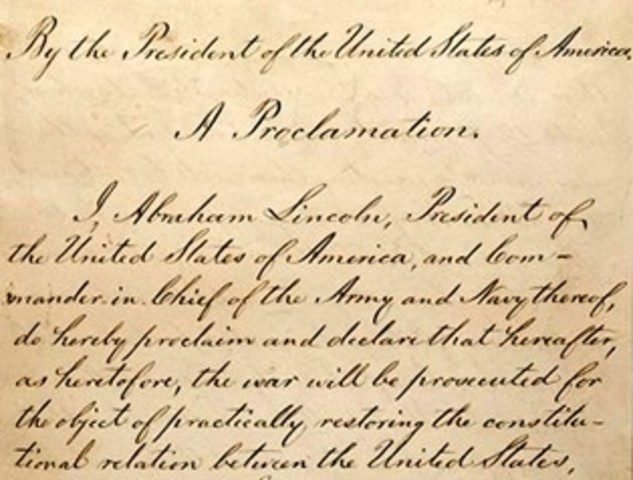 By the President of the United States of America.
A Proclamation.
I, Abraham Lincoln, President of
the United States of America, and Com-
mander-in-Chief of the Army and Navy thereof,
do hereby proclaim and declare that hereafter,
as heretofore, the war will be prosecuted for
the object of practically restoring the constitu-
tional relation between the United States,